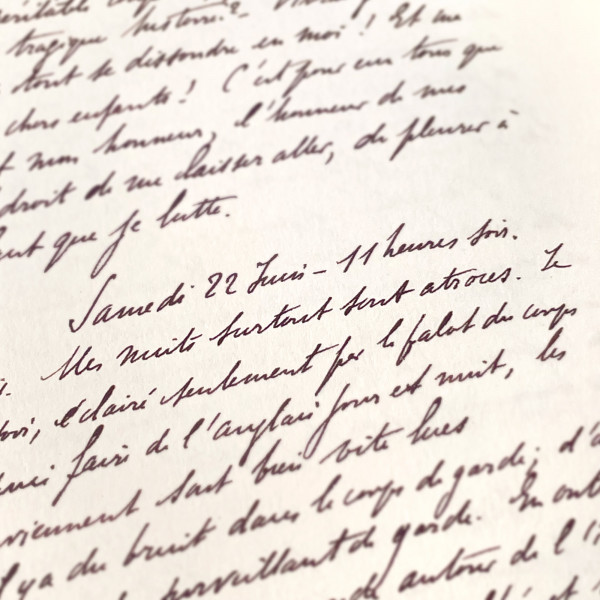 véritable
tragique histoire?
tout se dissoudre en moi! Et ma
chers enfants! C'est pour eux tous que
mon honneur, l'honneur de mes
droit de me laisser aller, de pleurer à
que je lutte.
Samedi 22 Juin - 11 heures soir.
Mes nuits surtout sont atroces. Je
éclairé seulement par le falot du corps
faire de l'anglais jour et nuit, les
viennent sont bien vite lues
Il y a du bruit dans le corps de garde; d'a
surveillant de garde. En outre
autour de l'î